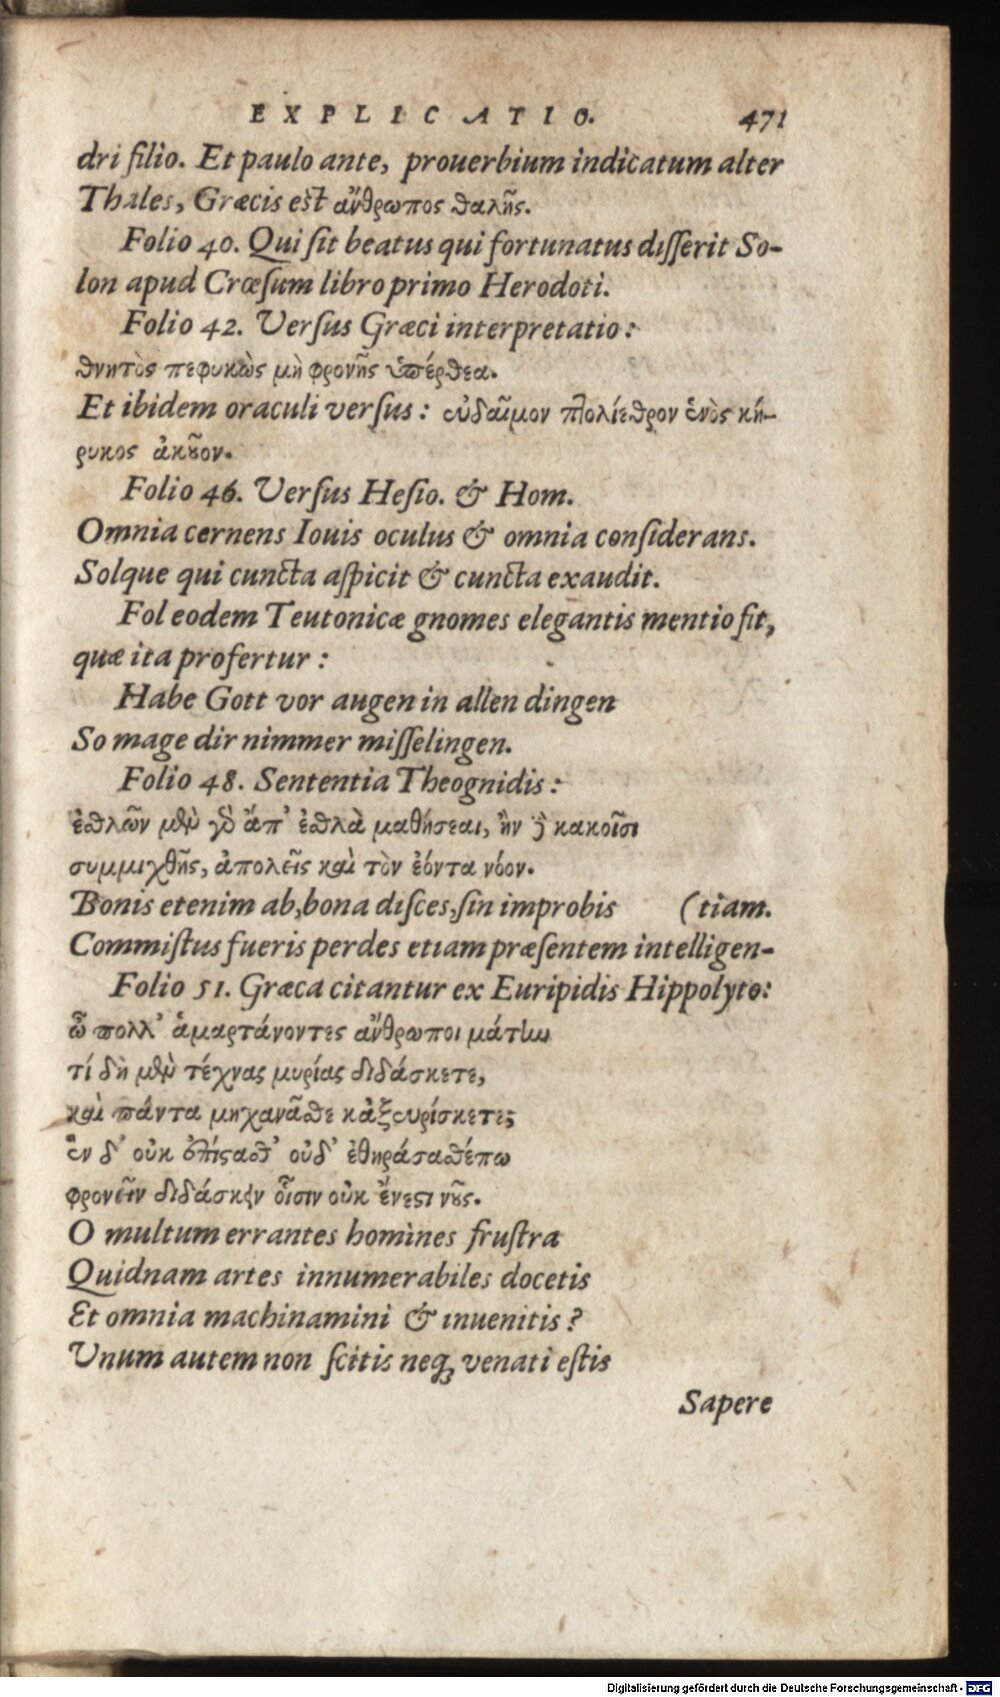 EXPLICATIO. 471
dri filio. Et paulo ante, prouerbium indicatum alter
Thales, Græcis est ἄνθρωπος θαλῆς.
Folio 40. Qui ſit beatus qui fortunatus diſſerit So-
lon apud Crœſum libro primo Herodoti.
Folio 42. Verſus Græci interpretatio:
θνητὸς πεφυκὼς μὴ φρονῇς ὑπέρθεα.
Et ibidem oraculi verſus: εὐδαῖμον πτολίεθρον ἑνὸς κή-
ρυκος ἀκοῦον.
Folio 46. Verſus Heſio. & Hom.
Omnia cernens Iouis oculus & omnia conſiderans.
Solque qui cuncta aſpicit & cuncta exaudit.
Fol eodem Teutonicæ gnomes elegantis mentio fit,
quæ ita profertur:
Habe Gott vor augen in allen dingen
So mage dir nimmer miſſelingen.
Folio 48. Sententia Theognidis:
ἐσθλῶν μὲν γὸ ἄπ' ἐσθλὰ μαθήσεαι, ἢν δὲ κακοῖσι
συμμιχθῇς, ἀπολεῖς καὶ τὸν ἐόντα νόον.
Bonis etenim ab, bona diſces, ſin improbis (tiam.
Commiſtus fueris perdes etiam præſentem intelligen-
Folio 51. Græca citantur ex Euripidis Hippolyto:
ὦ πολλ' ἁμαρτάνοντες ἄνθρωποι μάτην
τί δὴ μὲν τέχνας μυρίας διδάσκετε,
καὶ πάντα μηχανᾶσθε κἀξευρίσκετε;
ἓν δ' οὐκ ἐπίστασθ' οὐδ' ἐθηράσασθέπω
φρονεῖν διδάσκειν οἷσιν οὐκ ἔνεστι νοῦς.
O multum errantes homines fruſtra
Quidnam artes innumerabiles docetis
Et omnia machinamini & inuenitis?
Vnum autem non ſcitis neq; venati eſtis
Sapere
Digitalisierung gefördert durch die Deutsche Forschungsgemeinschaft - DFG